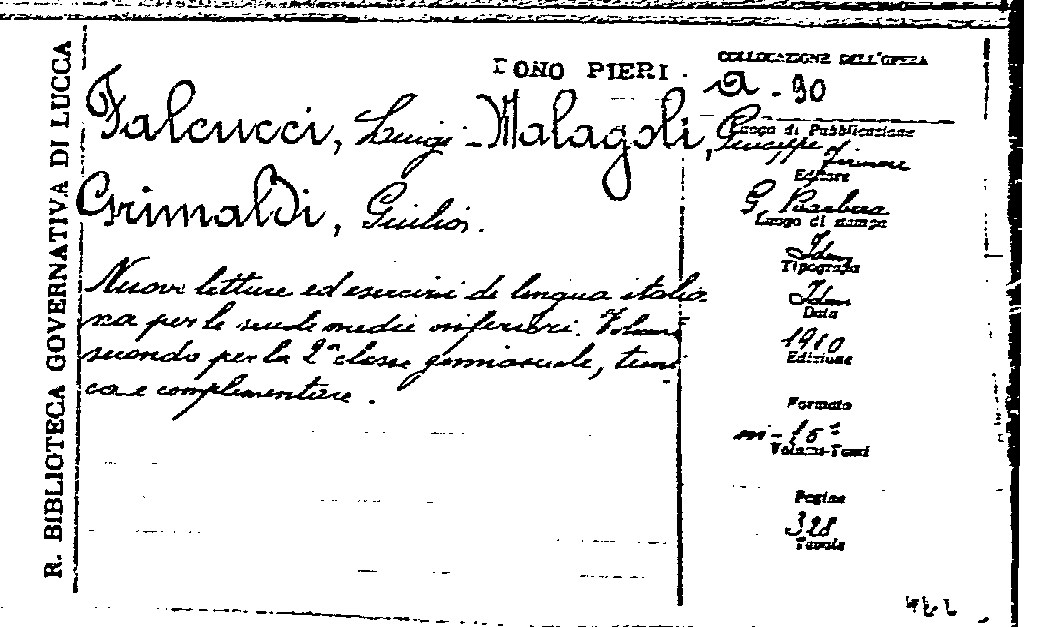 R. BIBLIOTECA GOVERNATIVA DI LUCCA
DONO PIERI.
Falcucci, Luigi - Malagoli, Giuseppe
Grimaldi, Giulio.
Nuove letture ed esercizi di lingua italia-
na per le scuole medie inferiori. Volume
secondo per la 2ª classe ginnasiale, tecni-
ca e complementare.
COLLOCAZIONE DELL'OPERA
A - 90
Luogo di Pubblicazione
Firenze
Editore
G. Barbera
Luogo di stampa
Idem
Tipografia
Idem
Data
1910
Edizione
Formato
in-16°
Volumi-Tomi
Pagine
328
Tavole